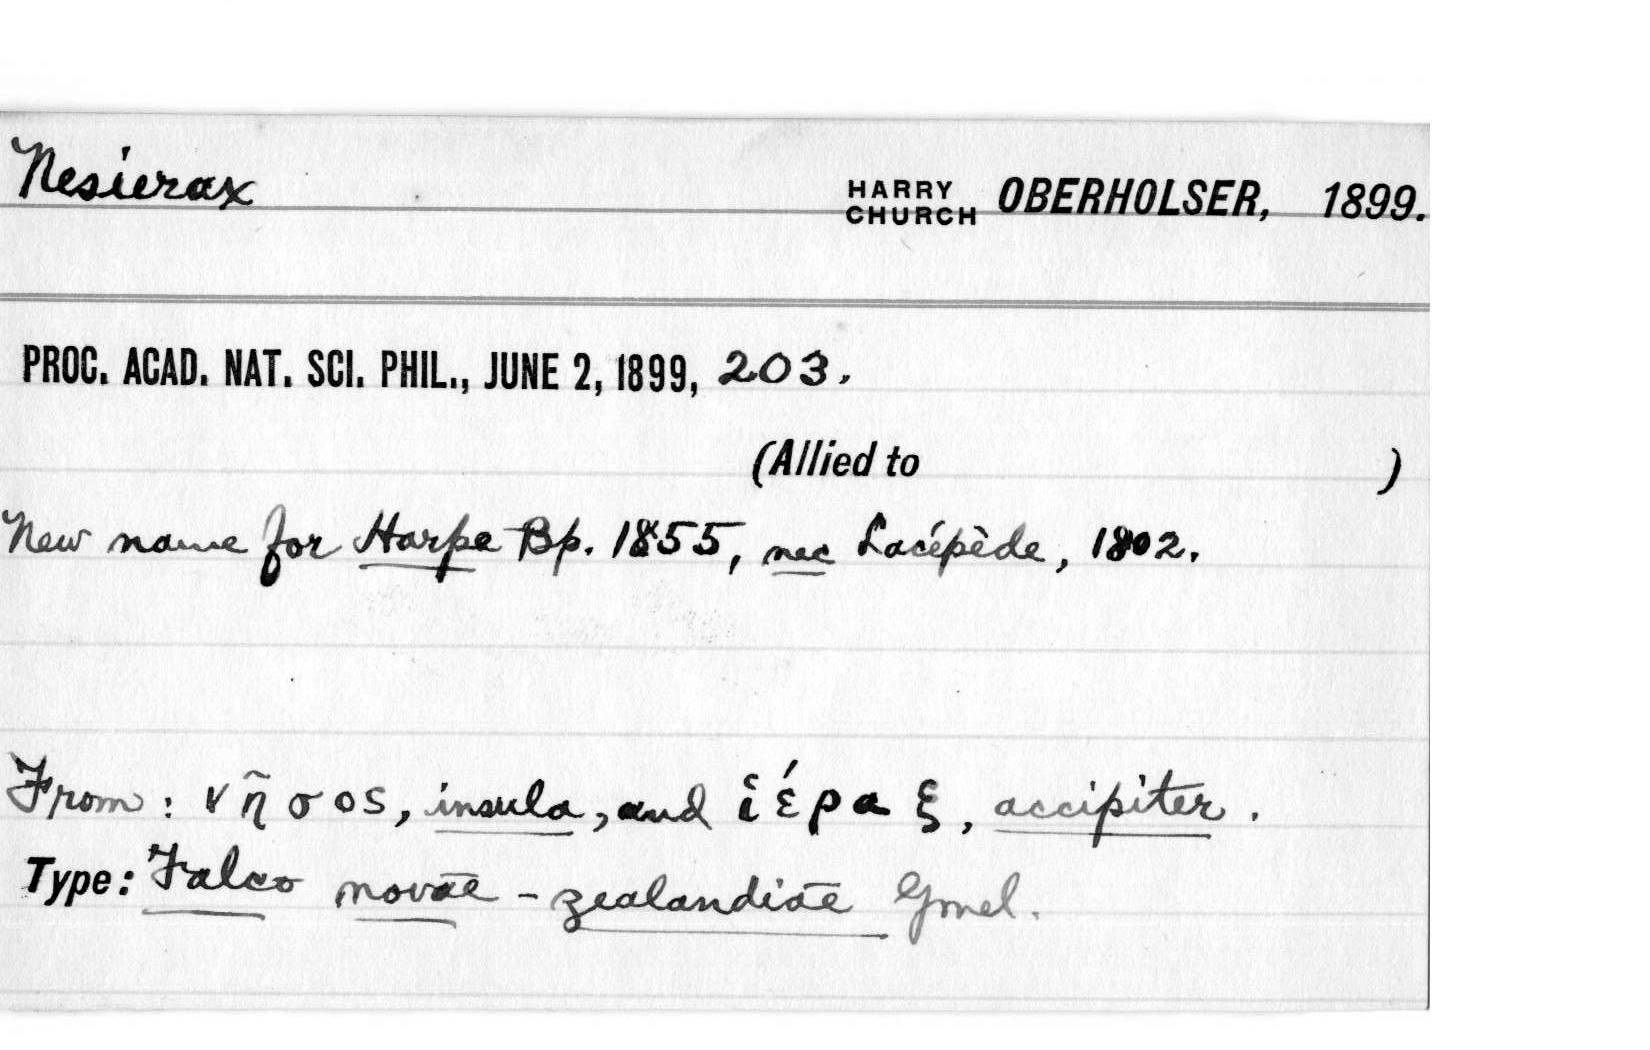 Nesierax HARRY CHURCH OBERHOLSER, 1899.
PROC. ACAD. NAT. SCI. PHIL., JUNE 2, 1899, 203.
(Allied to )
New name for Harpe Bp. 1855, nec Lacépède, 1802.
From: νῆσος, insula, and ἱέραξ, accipiter.
Type: Falco novae-zealandiae Gmel.